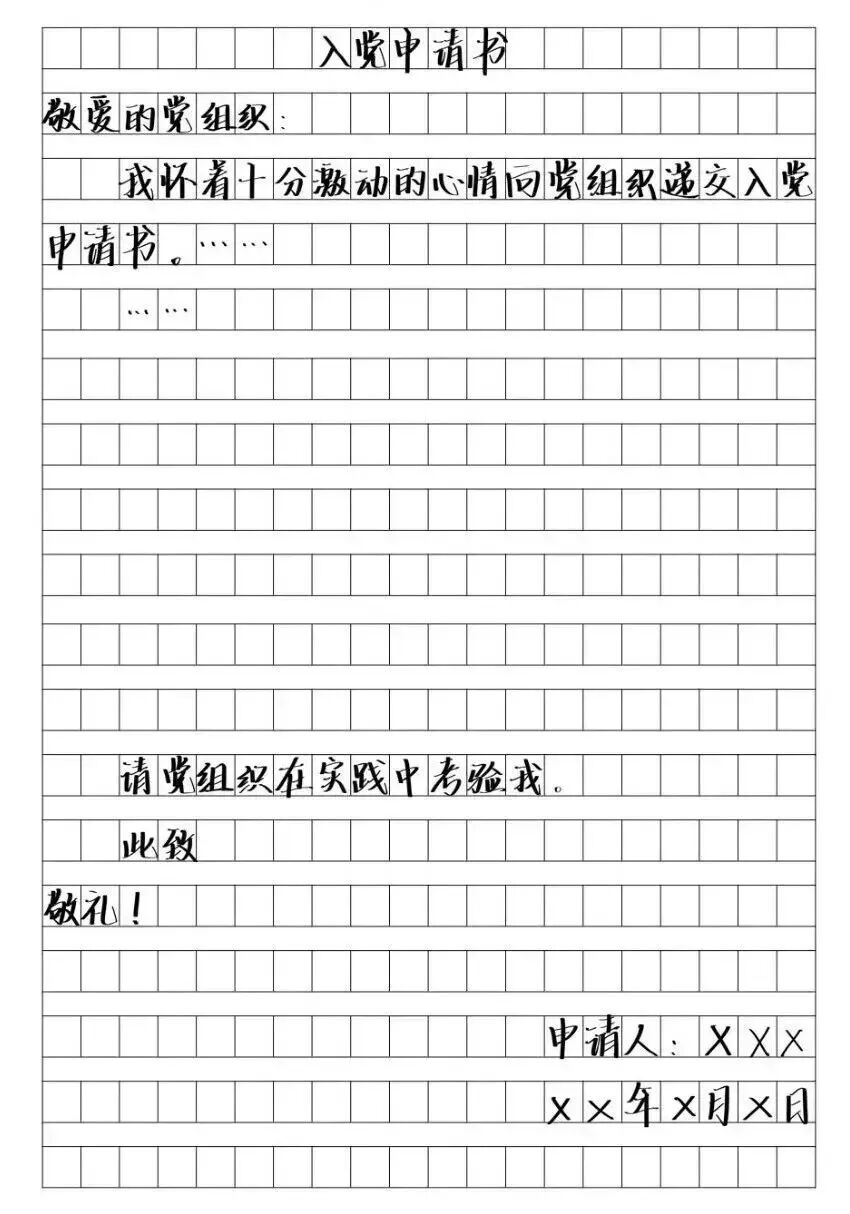 入党申请书
敬爱的党组织：
我怀着十分激动的心情向党组织递交入党
申请书。……
……
请党组织在实践中考验我。
此致
敬礼！
申请人：XXX
XX年X月X日